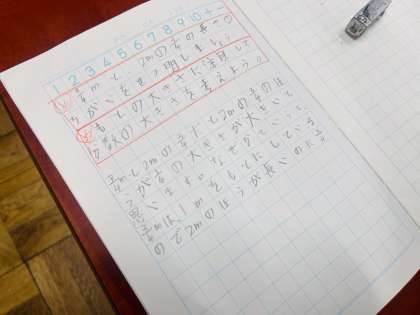 1 2 3 4 5 6 7 8 9 10
3/4mと、2mの3/4の長さの
ちがいをせつ明しましょう
もとの大きさに注目して
分数の大きさを考えよう。
3/4mと2mの3/4だと2mの3/4のほ
うがもとの大きさが大きいと
思います。なぜかというと、
3/4mは、1mをもとにしている
ので2mのほうが長いの